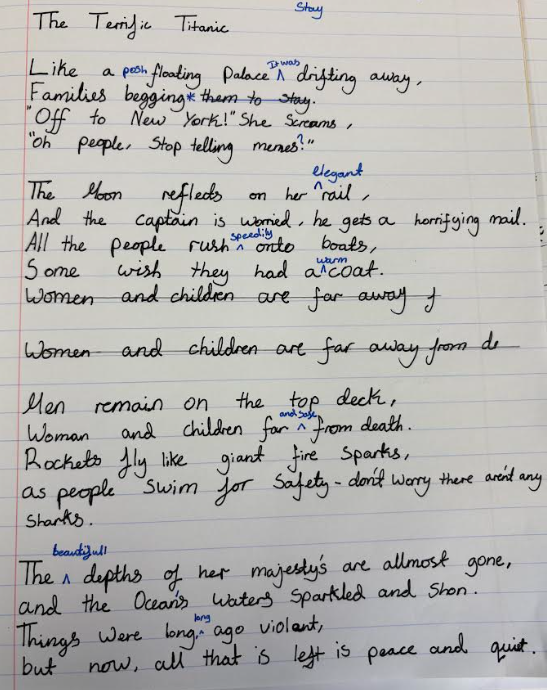 Stay
The Terrific Titanic
Like a posh floating Palace It was drifting away,
Families begging* them to stay.
"Off to New York!" She Screams,
"oh people, Stop telling memes?"
The Moon reflects on her elegant rail,
And the captain is worried, he gets a horrifying mail.
All the people rush speedily onto boats,
Some wish they had a warm coat.
Women and children are far away f
Women and children are far away from de
Men remain on the top deck,
Woman and children far and safe from death.
Rockets fly like giant fire Sparks,
as people Swim for Safety - don't worry there aren't any
Sharks.
The beautifull depths of her majesty's are allmost gone,
and the Ocean's Waters Sparkled and Shon.
Things were long, long ago violent,
but now, all that is left is peace and quiet.